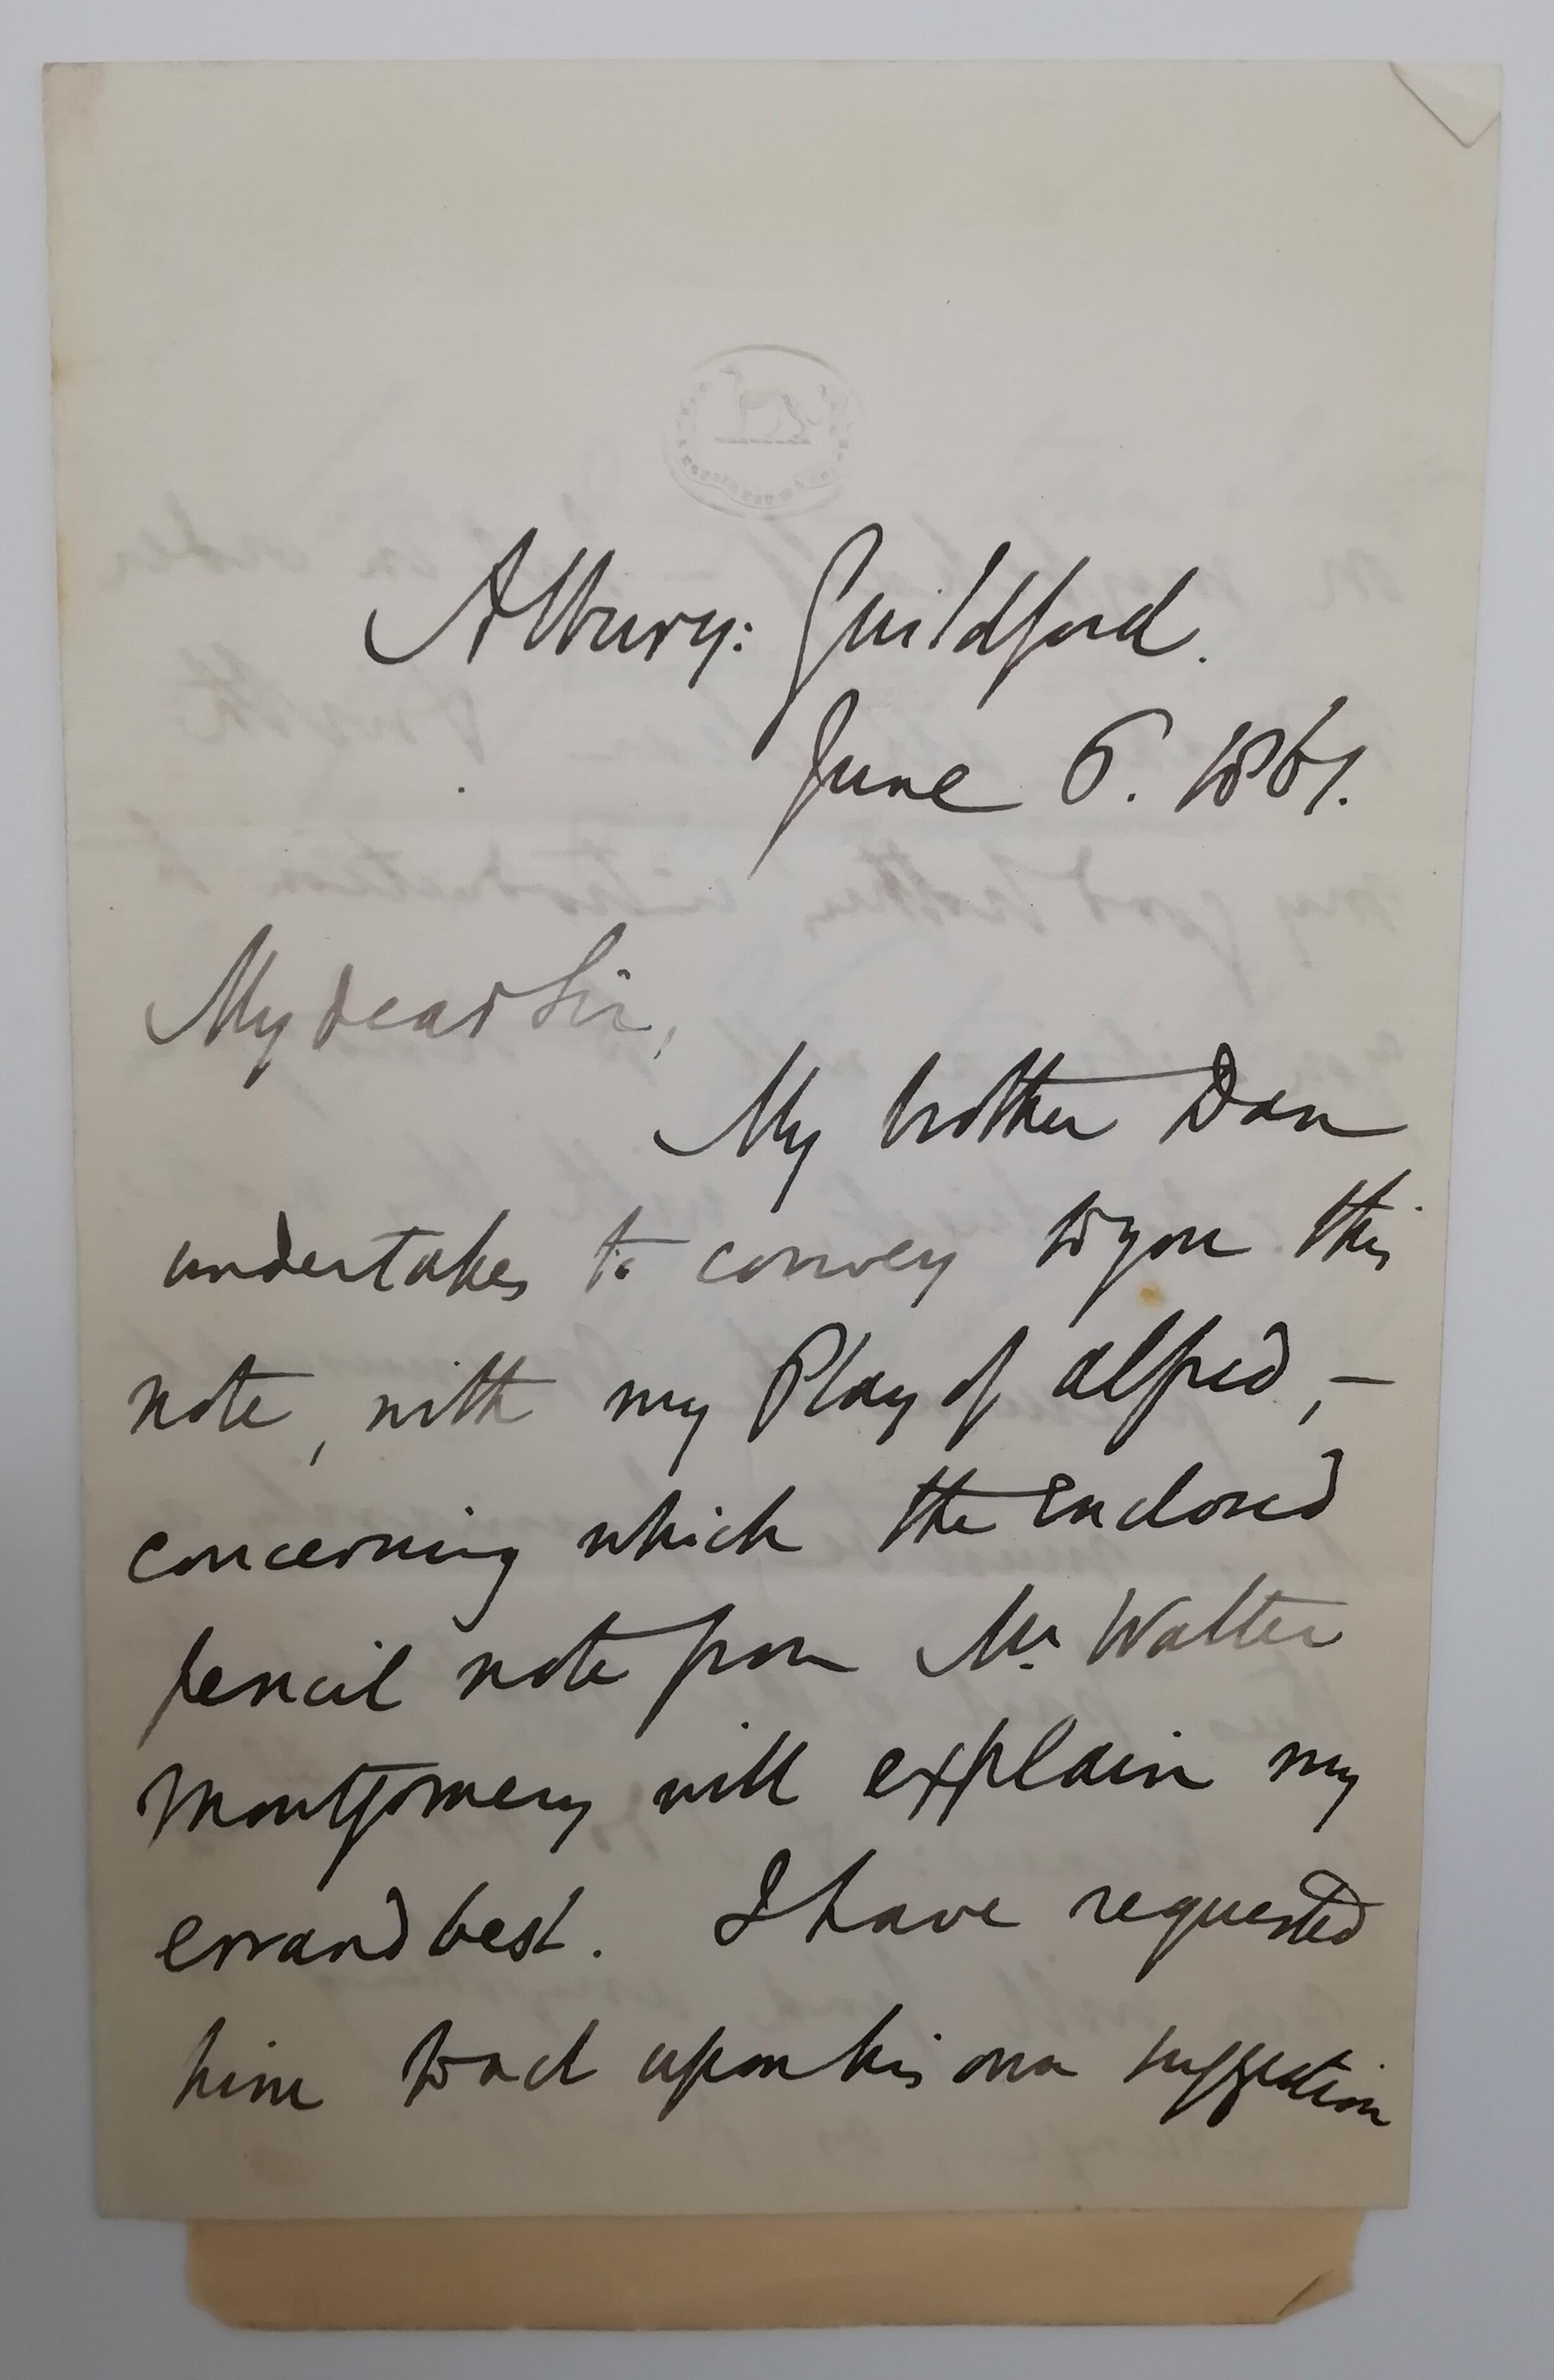 Albury: Guildford.
June 6. 1861.
My dear Sir,
My brother Dan
undertakes to convey to you this
note, with my Play of Alfred, –
concerning which the enclosed
pencil note from Mr. Walter
Montgomery will explain my
errand best. I have requested
him to act upon his own suggestion